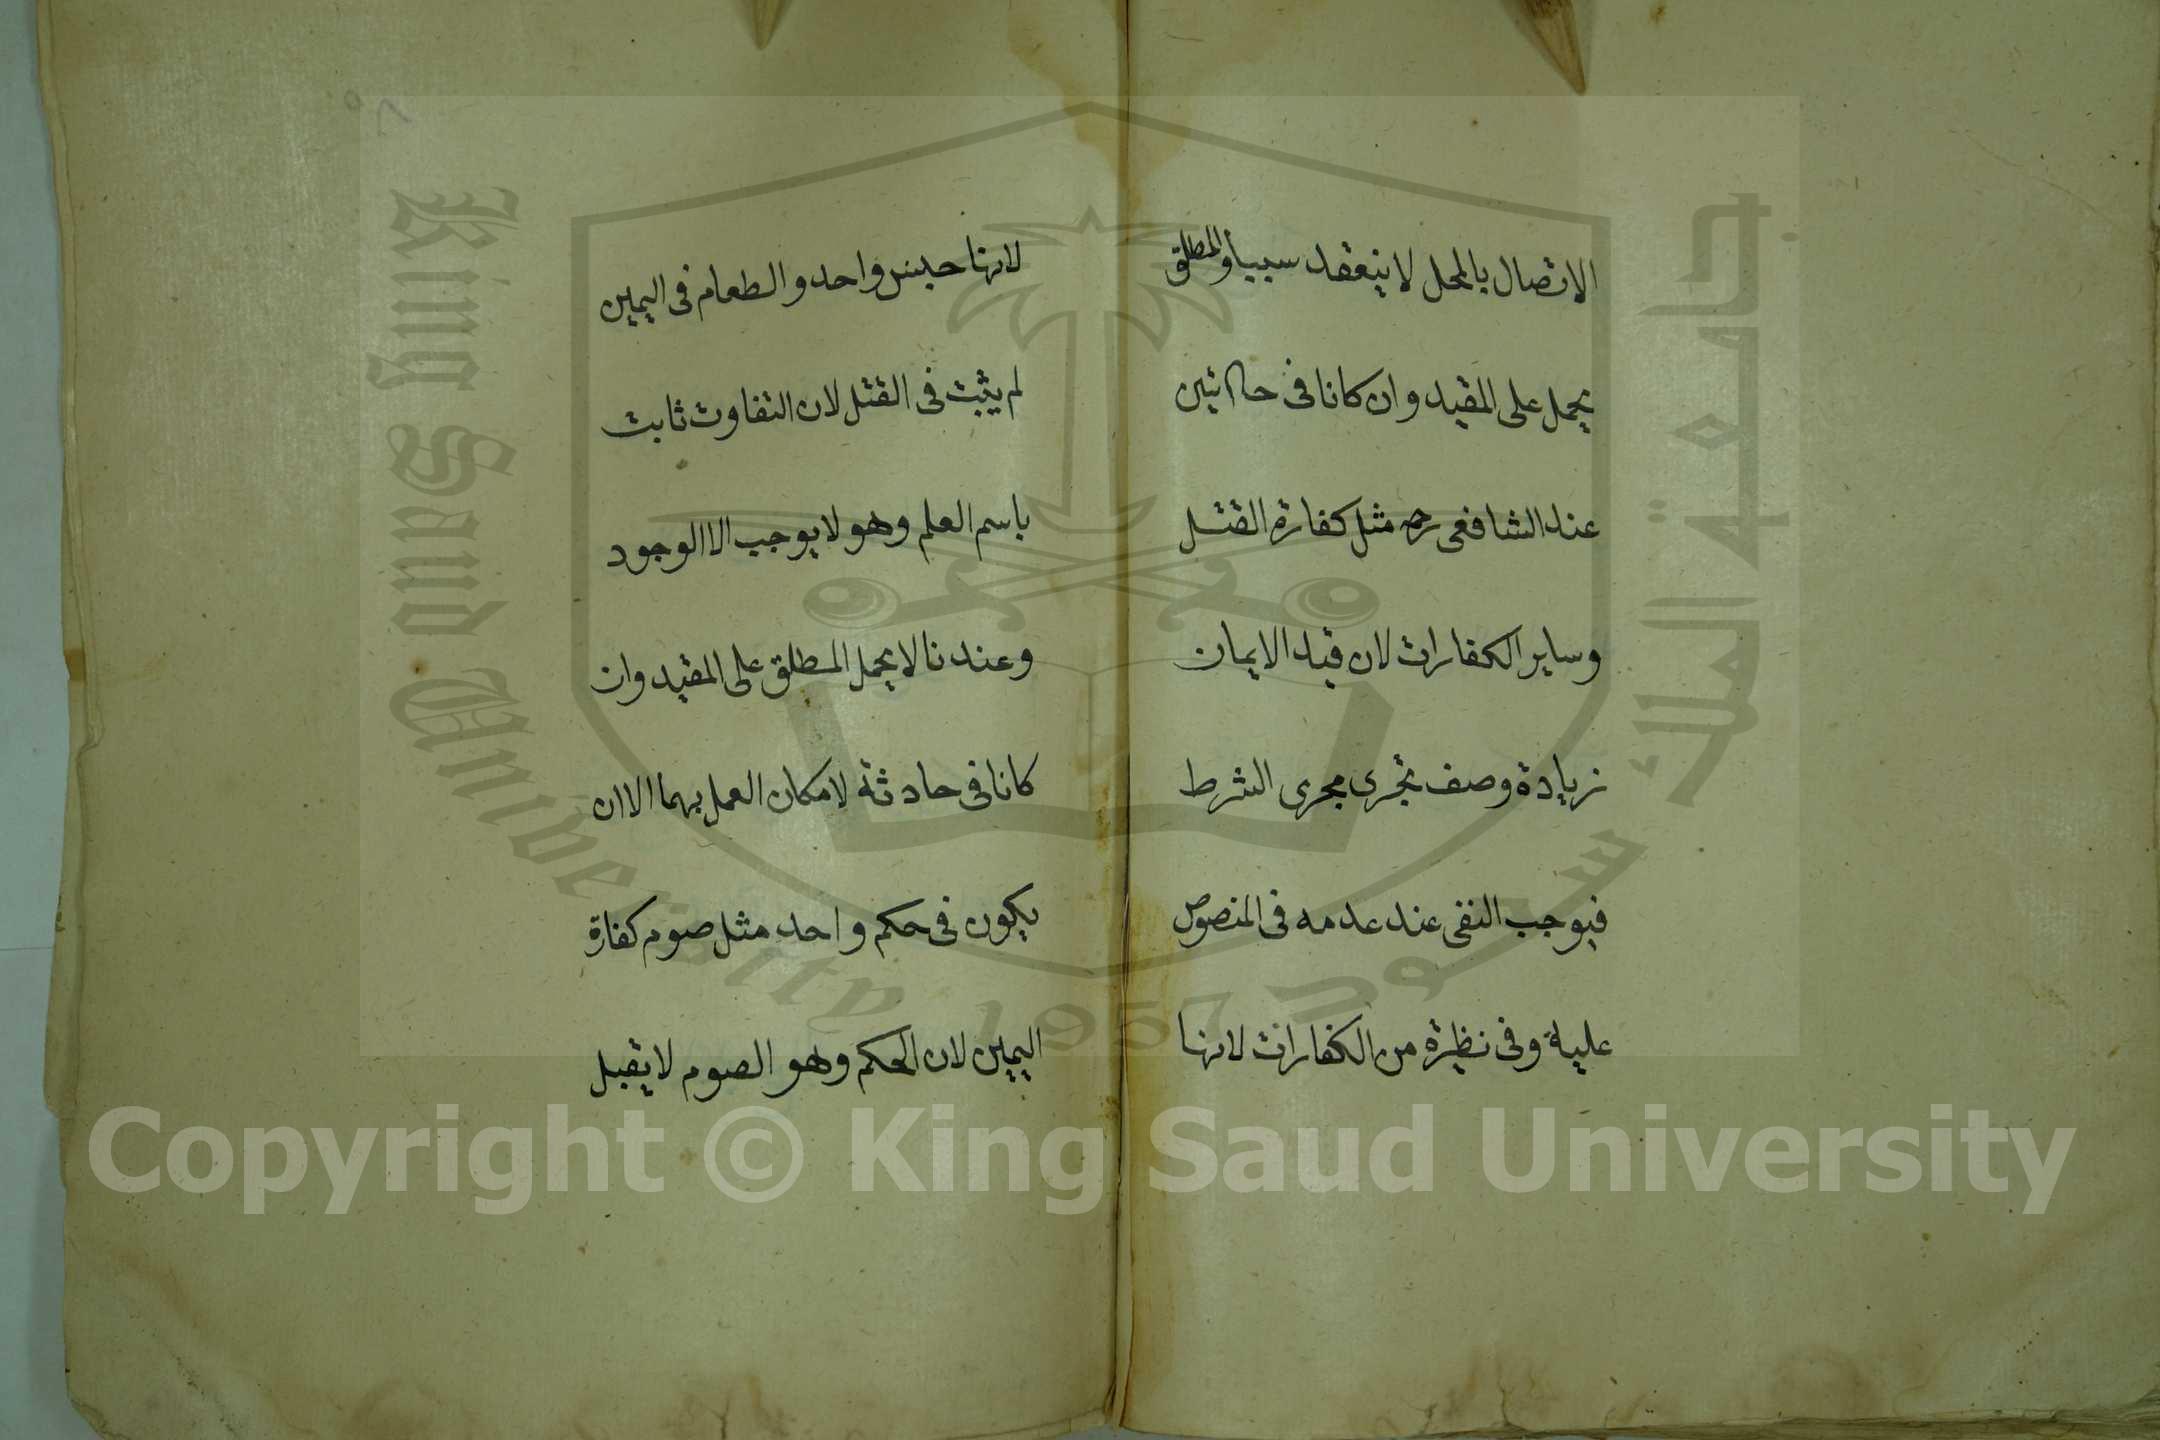 الاتصال بالمحل لا ينعقد سببا والمطلق
يحمل على المقيد وان كانا في حادثتين
عند الشافعي رح مثل كفارة القتل
وساير الكفارات لان قيد الايمان
زيادة وصف يجرى مجرى الشرط
فيوجب النفى عند عدمه فى المنصوص
عليه وفى نظيره من الكفارات لانها
لانها جنس واحد والطعام فى اليمين
لم يثبت فى القتل لان التفاوت ثابت
باسم العلم وهو لا يوجب الا الوجود
وعندنا لا يحمل المطلق على المقيد وان
كانا فى حادثة لامكان العمل بهما الا ان
يكون فى حكم واحد مثل صوم كفارة
اليمين لان الحكم وهو الصوم لا يقبل
٥٨
King Saud University
جامعة الملك سعود
1957
Copyright © King Saud University